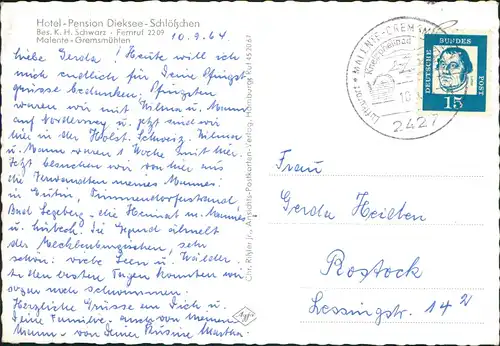 Hotel-Pension Dieksee-Schlößchen
Bes. K. H. Schwarz · Fernruf 2209
Malente-Gremsmühlen
10.9.64
Liebe Gerda! Heute will ich
mich endlich für Deine Pfingst
grüsse bedanken. Pfingsten
waren wir mit Hilma u. Mann
auf u. jetzt sind wir
hier in der Holst. Schweiz. Hilma
u. Mann waren 1 Woche mit hier.
Jetzt besuchen wir von hier aus
die Verwandten meines Mannes
in Eutin, Timmendorferstrand
Bad Segeberg - die Heimat m. Mannes
u. Lübeck. Die Gegend ähnelt
der Mecklenburgischen, sehr
schön: viele Seen u. Wälder.
In den ersten Tagen konnten wir
sogar noch schwimmen.
Herzliche Grüsse an Dich u.
Deine Familie - auch von meinem
Mann - von Deiner Kusine
Chr. Köhler jr., Ansichts-Postkarten-Verlag, Hamburg
Agfa
MALENTE-GREMSMÜHLEN
Kneippheilbad
Luftkurort
2427
DEUTSCHE
BUNDES
POST
15
Frau
Gerda
Rostock
Lessingstr. 142